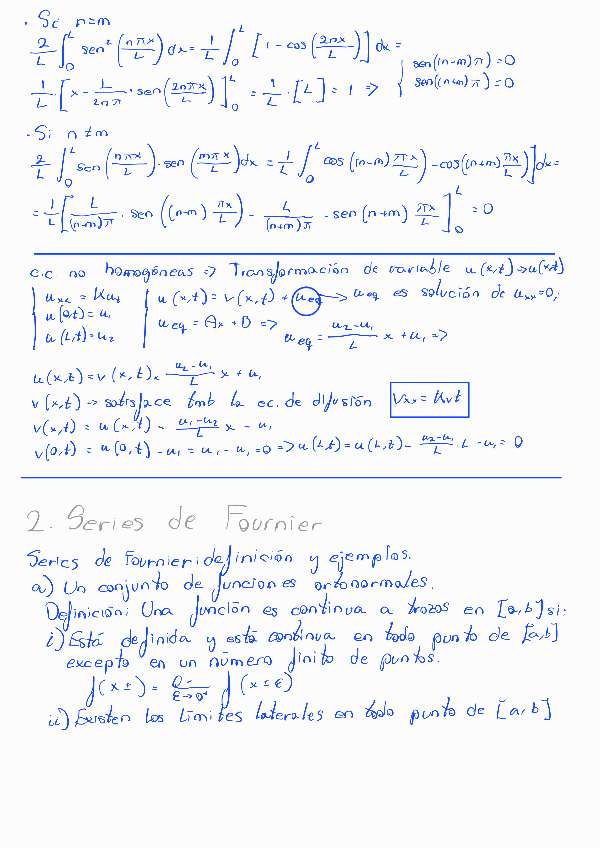 · Si n=m
2/L ∫₀ᴸ sen² (nπx/L) dx = 1/L ∫₀ᴸ [1 - cos (2nx/L)] dx =
1/L · [x - L/2nπ · sen (2nπx/L)]₀ᴸ = 1/L · [L] = 1 => { sen((n-m)π) = 0
sen((n+m)π) = 0
· Si n ≠ m
2/L ∫₀ᴸ sen (nπx/L) · sen (mπx/L) dx = 1/L ∫₀ᴸ cos ((n-m) πx/L) - cos((n+m) πx/L)] dx =
= 1/L [L/(n-m)π · sen ((n-m) πx/L) - L/(n+m)π · sen (n+m) πx/L]₀ᴸ = 0
c.c no homogéneas => Transformación de variable u(x,t) → v(x,t)
u_xx = Ku_t
u(0,t) = u₁
u(L,t) = u₂
u(x,t) = v(x,t) + u_eq → u_eq es solución de u_xx = 0;
u_eq = Ax + B => u_eq = u₂-u₁/L x + u₁ =>
u(x,t) = v(x,t) + u₂-u₁/L x + u₁
v(x,t) → satisface tmb la ec. de difusión V_xx = K_v t
v(x,t) = u(x,t) - u₁-u₂/L x - u₁
v(0,t) = u(0,t) - u₁ = u₁ - u₁ = 0 => u(L,t) = u(L,t) - u₂-u₁/L · L - u₁ = 0
2. Series de Fournier
Series de Fournier: definición y ejemplos.
a) Un conjunto de funciones ortonormales.
Definición: Una función es continua a trozos en [a,b] si:
i) Está definida y está continua en todo punto de [a,b]
excepto en un número finito de puntos.
f(x±) = ε→0⁺ f(x±ε)
ii) Existen los límites laterales en todo punto de [a,b]